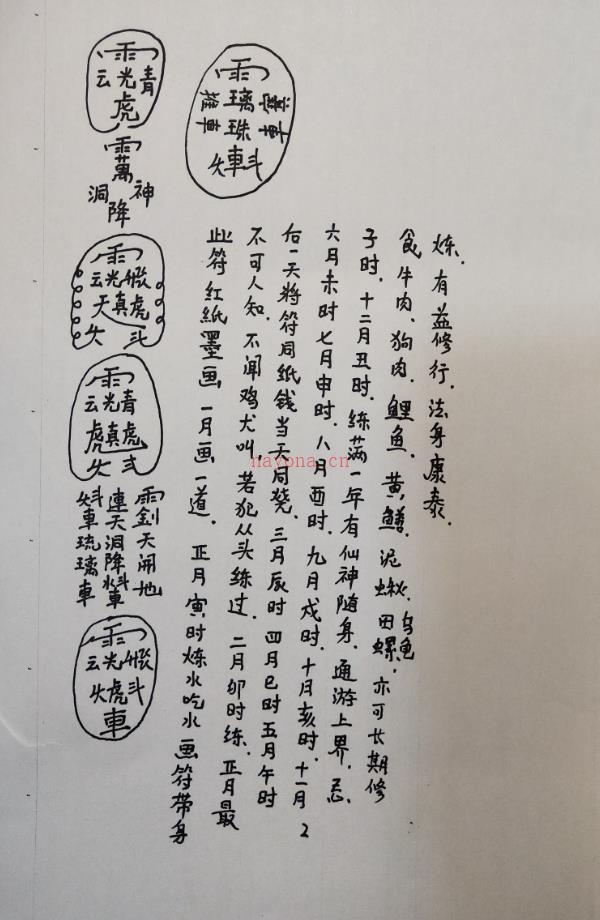 雨
云光青
虎
雨
萬
洞降神
雨
云光
天真虎
火斗
雨
云光青
虎真虎
火
火斗車琉璃車
連天洞降水斗車
雨劍天開地
雨
云光
火虎斗
車
雨
推車
璃珠
火車斗
此符红紙墨画一月画一道.正月寅时炼水吃水画符带身
不可人知.不闻鸡犬叫.若犯从头练过.二月卯时练.正月最
后一天将符同纸钱当天同烧.三月辰时四月巳时五月午时
六月未时七月申时.八月酉时.九月戌时.十月亥时.十一月
子时.十二月丑时.练满一年有仙神随身.通游上界.忌.
食牛肉.狗肉.鲤鱼.黄鳝.泥鳅.田螺.乌龟.亦可长期修
炼.有益修行.法身康泰.
2
nayona.cn